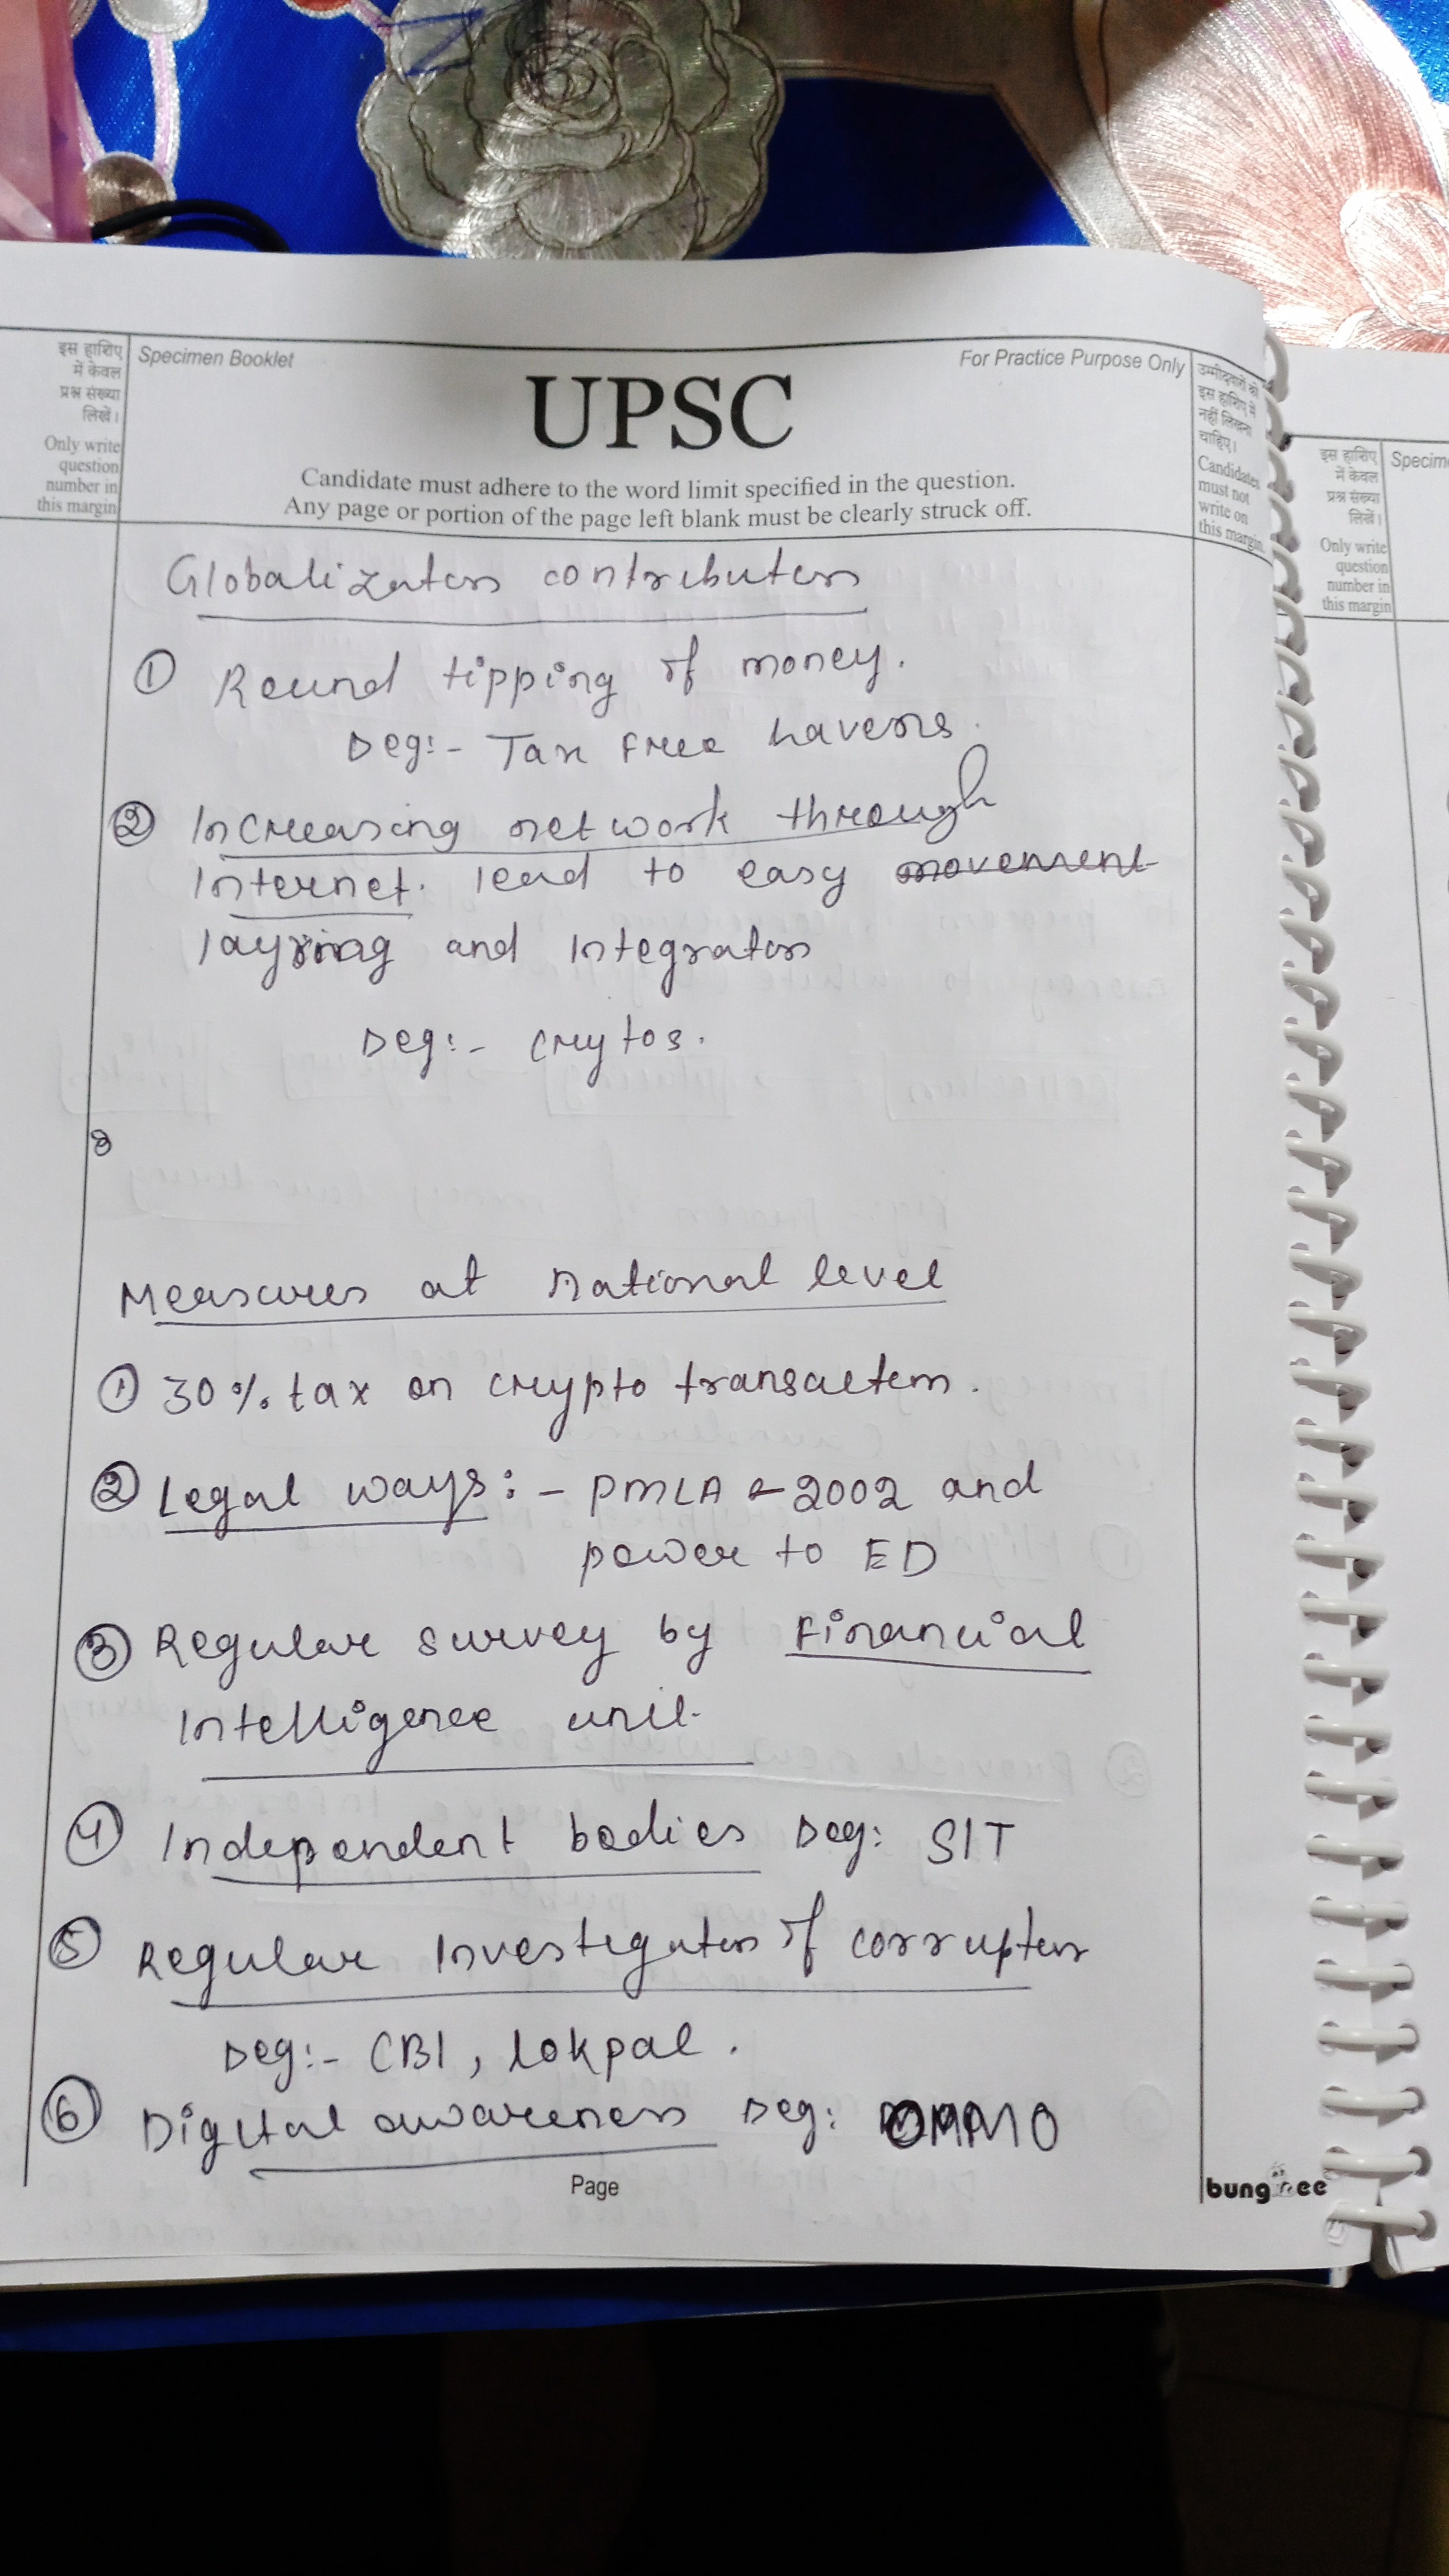 इस हाशिए
में केवल
प्रश्न संख्या
लिखें।
Only write
question
number in
this margin
Specimen Booklet
For Practice Purpose Only
UPSC
Candidate must adhere to the word limit specified in the question.
Any page or portion of the page left blank must be clearly struck off.
उम्मीदवारों को
इस हाशिए में
नहीं लिखना
चाहिए।
Candidates
must not
write on
this margin
Globalization contribution
① Round tipping of money.
Deg:- Tax free havens.
② Increasing network through
Internet. lead to easy movement
layring and Integration
Deg:- crytos.
Measures at national level
① 30% tax on crypto transaction.
② Legal ways:- PMLA - 2002 and
power to ED
③ Regular survey by Financial
Intelligence unit.
④ Independent bodies Deg: SIT
⑤ Regular Investigation of corruption
Deg:- CBI, lokpal.
⑥ Digital awareness Deg:
Page
इस हाशिए
में केवल
प्रश्न संख्या
लिखें।
Only write
question
number in
this margin